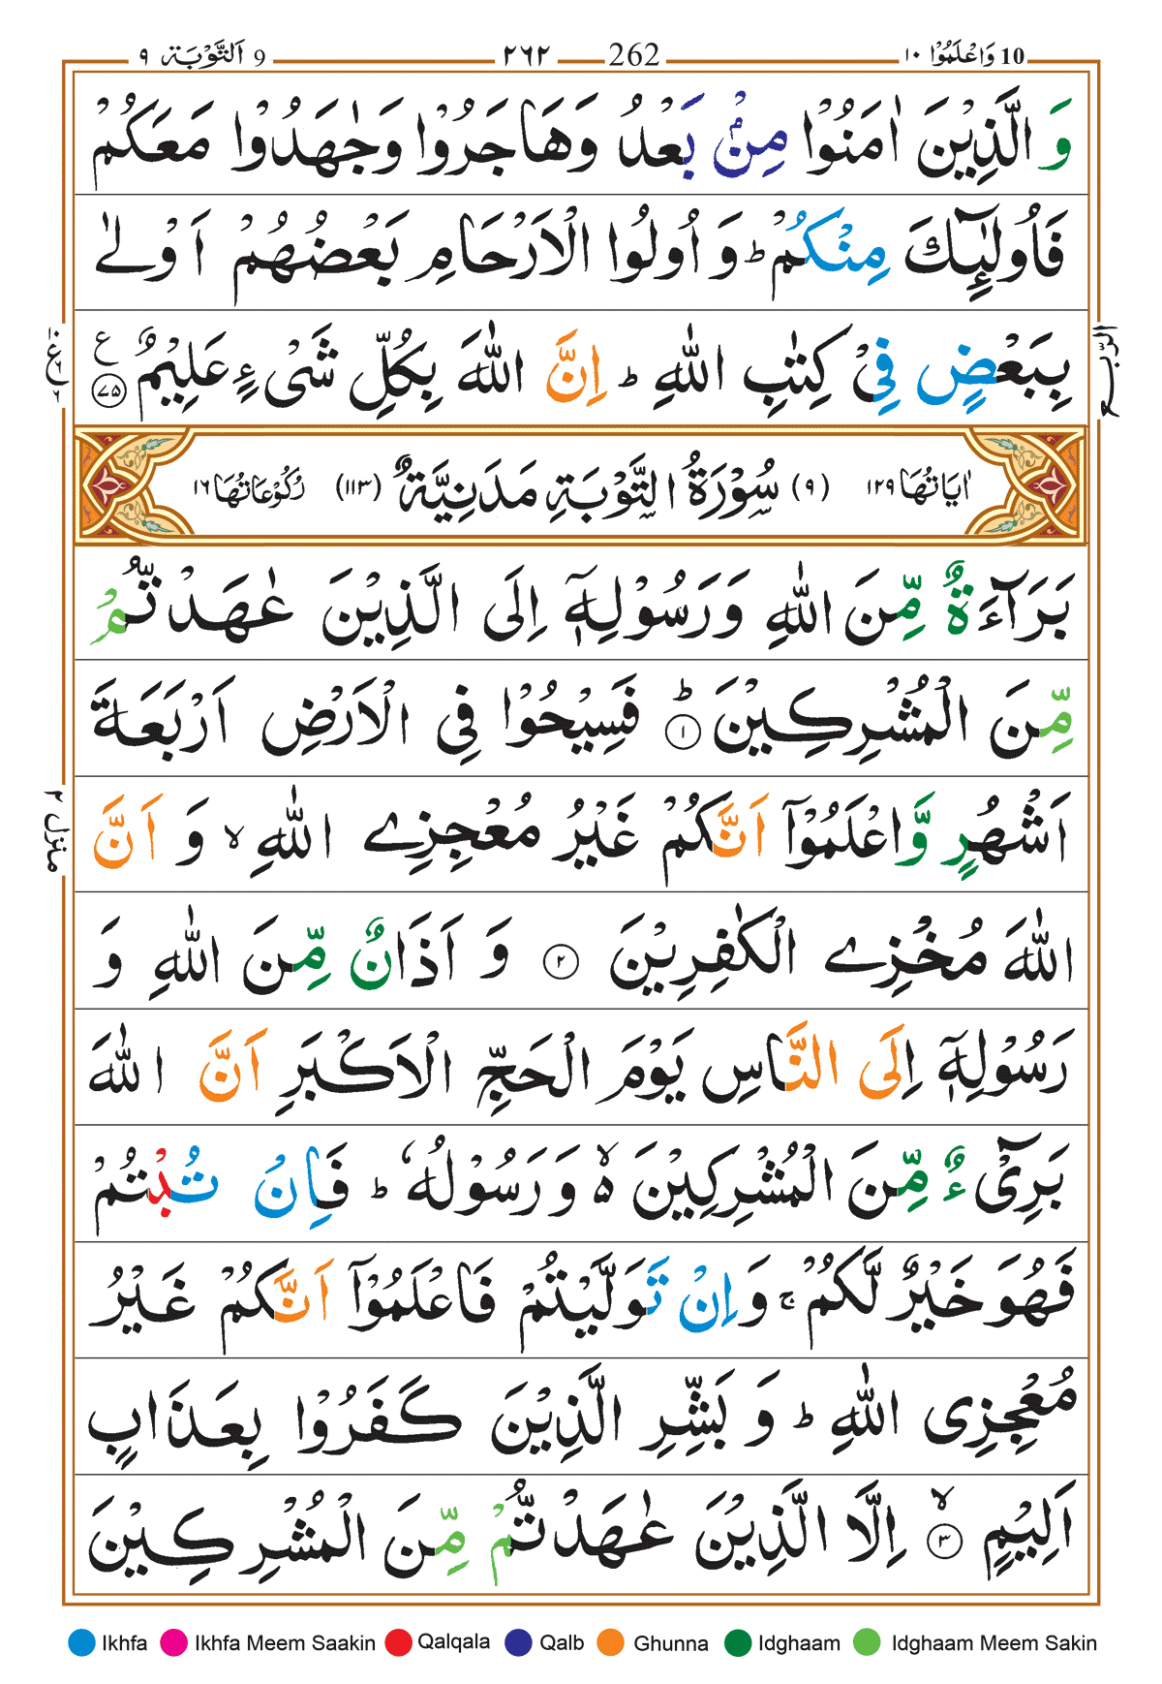 9 اَلتَّوْبَة ٩ ٢٦٢ 262 10 وَاعْلَمُوْا ١٠
وَ الَّذِيْنَ اٰمَنُوْا مِنْۢ بَعْدُ وَهَاجَرُوْا وَجٰهَدُوْا مَعَكُمْ
فَاُولٰٓئِكَ مِنْكُمْ ؕ وَ اُولُوا الْاَرْحَامِ بَعْضُهُمْ اَوْلٰى
بِبَعْضٍ فِيْ كِتٰبِ اللّٰهِ ؕ اِنَّ اللّٰهَ بِكُلِّ شَيْءٍ عَلِيْمٌ ۧ ٧٥
الرّبع
اٰيَاتُهَا ١٢٩ (٩) سُوْرَةُ التَّوْبَةِ مَدَنِيَّةٌ (١١٣) رُكُوْعَاتُهَا ١٦
بَرَآءَةٌ مِّنَ اللّٰهِ وَرَسُوْلِهٖۤ اِلَى الَّذِيْنَ عٰهَدْتُّمْ
مِّنَ الْمُشْرِكِيْنَ ؕ ١ فَسِيْحُوْا فِي الْاَرْضِ اَرْبَعَةَ
اَشْهُرٍ وَّاعْلَمُوْۤا اَنَّكُمْ غَيْرُ مُعْجِزِي اللّٰهِ ۙ وَ اَنَّ
منزل ٢
اللّٰهَ مُخْزِي الْكٰفِرِيْنَ ٢ وَ اَذَانٌ مِّنَ اللّٰهِ وَ
رَسُوْلِهٖۤ اِلَى النَّاسِ يَوْمَ الْحَجِّ الْاَكْبَرِ اَنَّ اللّٰهَ
بَرِيْٓءٌ مِّنَ الْمُشْرِكِيْنَ ۙ۬ وَرَسُوْلُهٗ ؕ فَاِنْ تُبْتُمْ
فَهُوَ خَيْرٌ لَّكُمْ ۚ وَاِنْ تَوَلَّيْتُمْ فَاعْلَمُوْۤا اَنَّكُمْ غَيْرُ
مُعْجِزِي اللّٰهِ ؕ وَ بَشِّرِ الَّذِيْنَ كَفَرُوْا بِعَذَابٍ
اَلِيْمٍ ۙ ٣ اِلَّا الَّذِيْنَ عٰهَدْتُّمْ مِّنَ الْمُشْرِكِيْنَ
Ikhfa Ikhfa Meem Saakin Qalqala Qalb Ghunna Idghaam Idghaam Meem Sakin